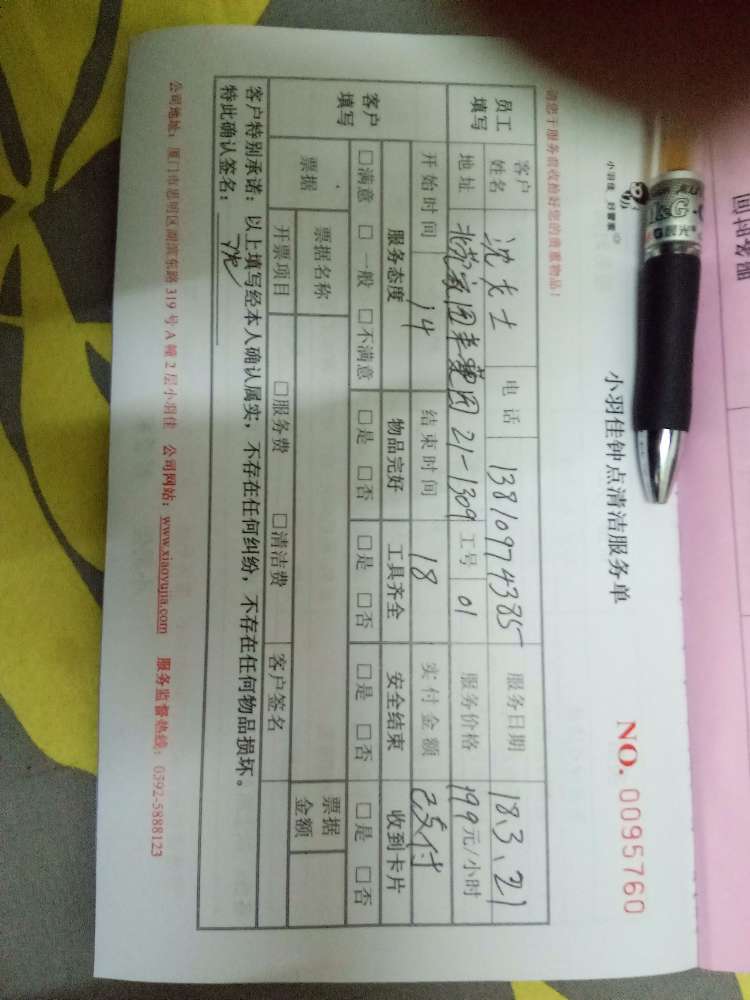 部发时间
小羽佳 好管家
小羽佳钟点清洁服务单
NO. 0095760
请您于服务前收捡好您的贵重物品!
员工填写 客户姓名 沈先士 电话 13810974385 服务日期 18.3.21
地址 21-1309 工号 01 服务价格 199元/小时
客户填写 开始时间 14 结束时间 18 实付金额 已支付
服务态度 物品完好 工具齐全 安全结束 收到卡片
□满意 □一般 □不满意 □是 □否 □是 □否 □是 □否 □是 □否
票据 票据名称 票据金额
开票项目 □服务费 □清洁费 客户签名
客户特别承诺:以上填写经本人确认属实,不存在任何纠纷,不存在任何物品损坏。
特此确认签名: 沈
公司地址:厦门市思明区湖滨东路319号A幢2层小羽佳 公司网站:www.xiaoyujia.com 服务监督热线:0592-5888123